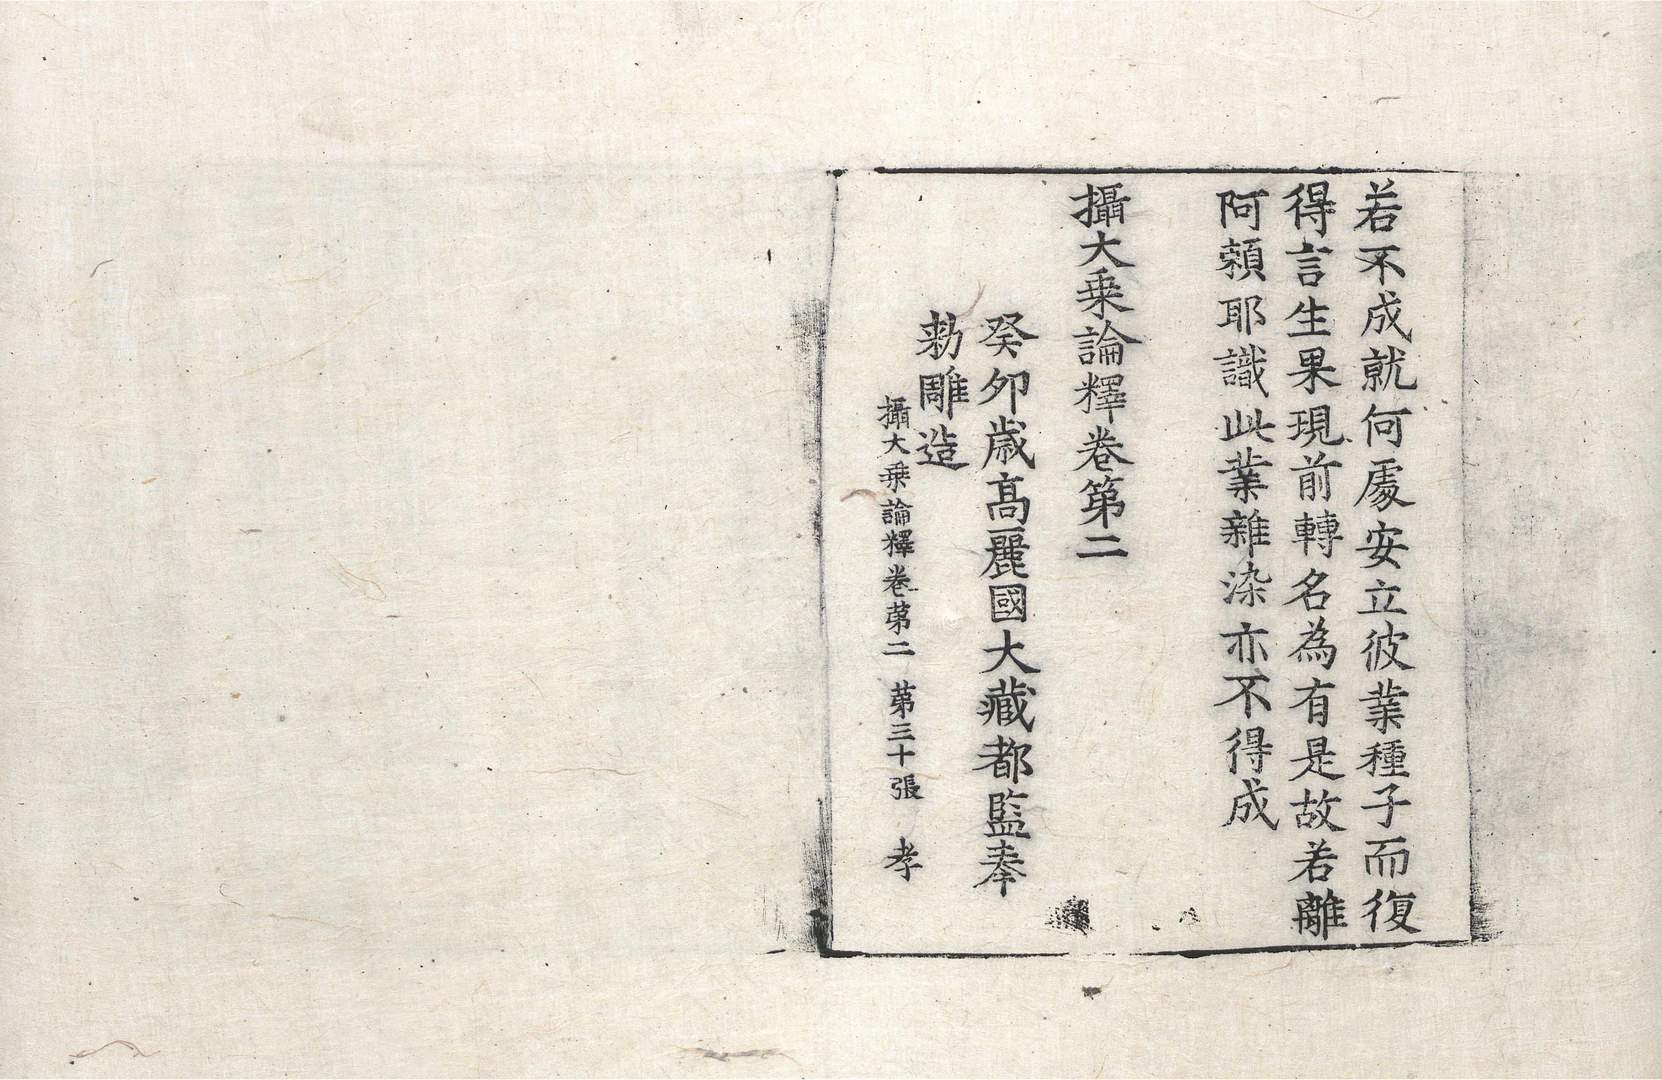 若不成就何處安立彼業種子而復
得言生果現前轉名為有是故若離
阿頼耶識此業雜染亦不得成
攝大乗論釋卷第二
癸卯歲高麗國大藏都監奉
勑雕造
攝大乗論釋卷第二 第三十張 孝